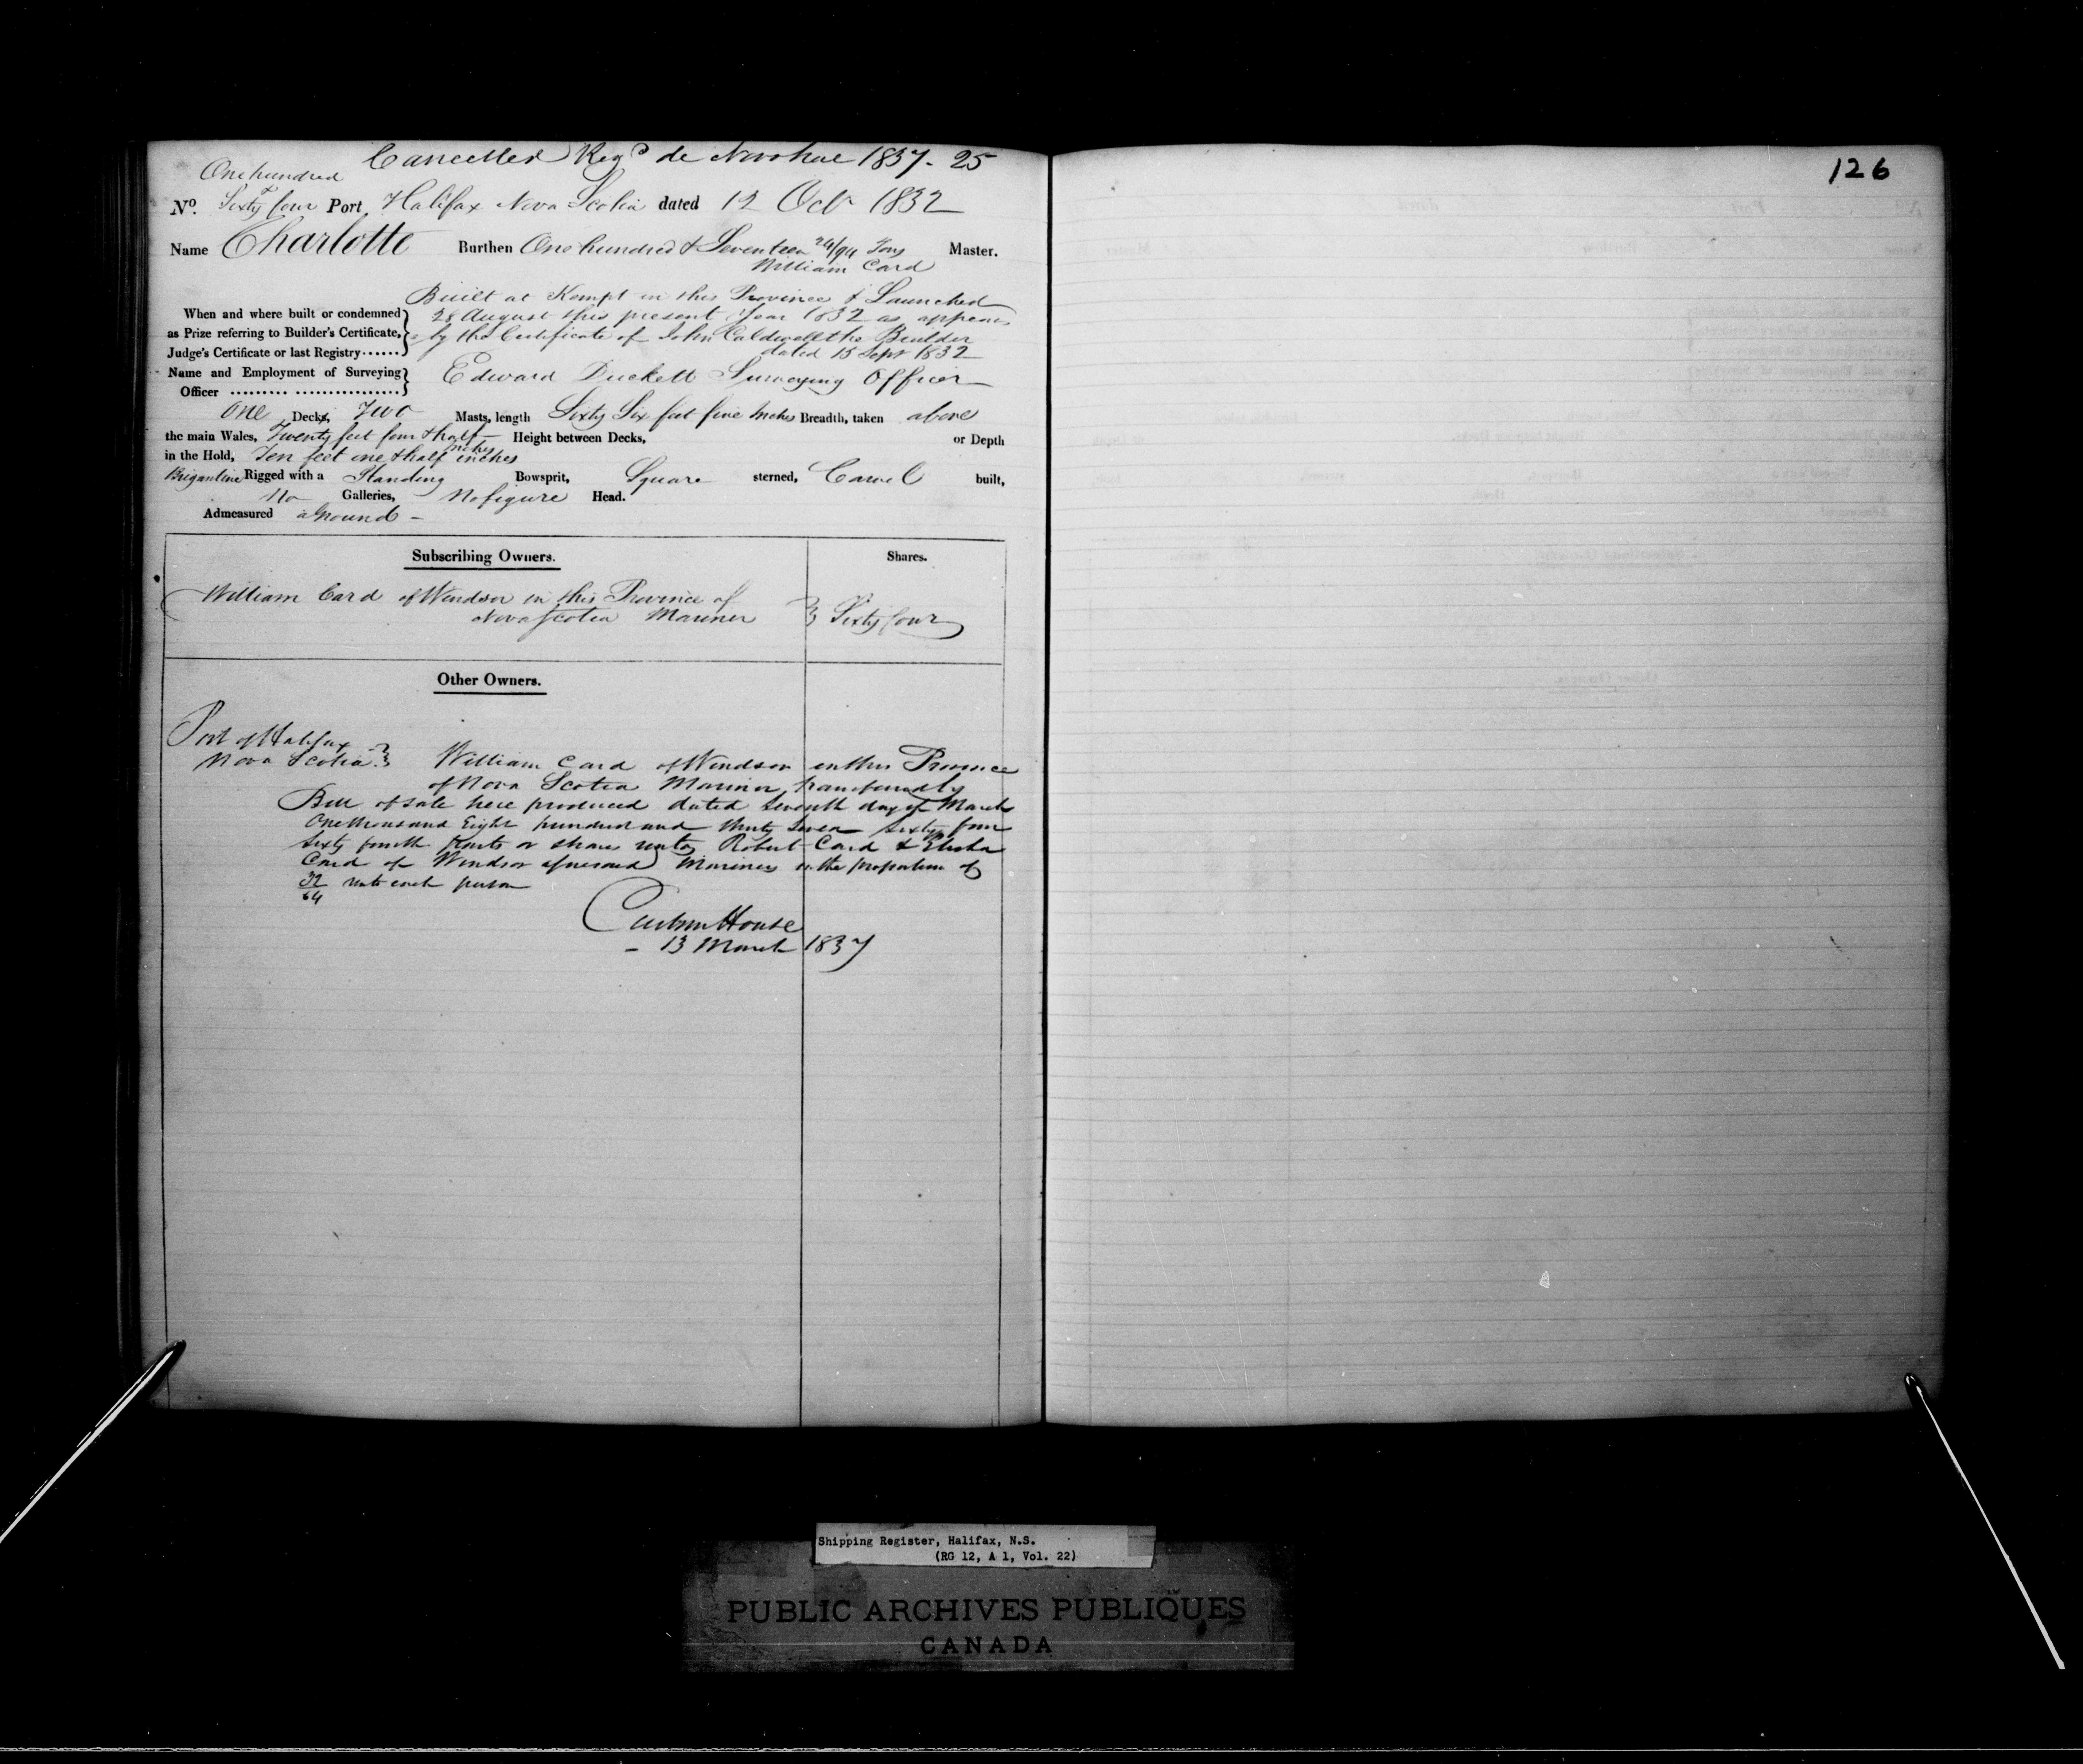 Cancelled Regd de Novo hue 1837-25
One hundred
No. Sixty four Port Halifax Nova Scotia dated 12 Oct 1832
Name Charlotte Burthen One hundred & Seventeen 24/94 Tons Master.
William Card
Built at Kempt in this Province & Launched
When and where built or condemned 28 August this present Year 1832 as appears
as Prize referring to Builder's Certificate, by the Certificate of John Caldwell the Builder
Judge's Certificate or last Registry...... dated 15 Sept 1832
Name and Employment of Surveying Edward Duckett Surveying Officer
Officer
One Decks, Two Masts, length Sixty Six feet five Inches Breadth, taken above
the main Wales, Twenty feet four & half Inches Height between Decks, or Depth
in the Hold, Ten feet one & half inches
Brigantine Rigged with a Standing Bowsprit, Square sterned, Carvel built,
No Galleries, No figure Head.
Admeasured aground -
Subscribing Owners. Shares.
William Card of Windsor in this Province of
Nova Scotia Mariner Sixty four
Other Owners.
Port of Halifax
Nova Scotia William Card of Windsor in this Province
of Nova Scotia Mariner transferred by
Bill of sale here produced dated Seventh day of March
One thousand Eight hundred and thirty Seven Sixty four
Sixty fourth parts or shares unto Robert Card & Elisha
Card of Windsor aforesaid Mariners in the proportion of
32/64 unto each person
Custom House
- 13 March 1837
126
Shipping Register, Halifax, N.S.
(RG 12, A 1, Vol. 22)
PUBLIC ARCHIVES PUBLIQUES
CANADA